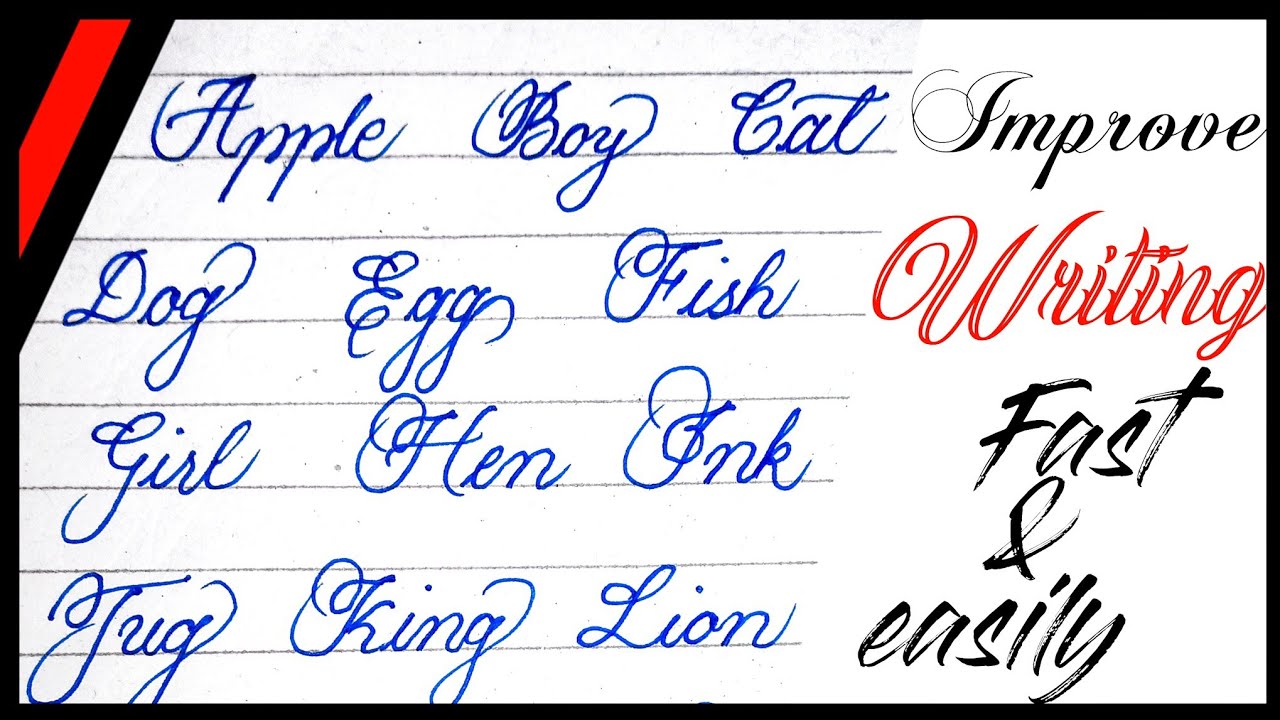 Apple Boy Cat
Dog Egg Fish
Girl Hen Ink
Jug King Lion
Improve
Writing
Fast
&
easily